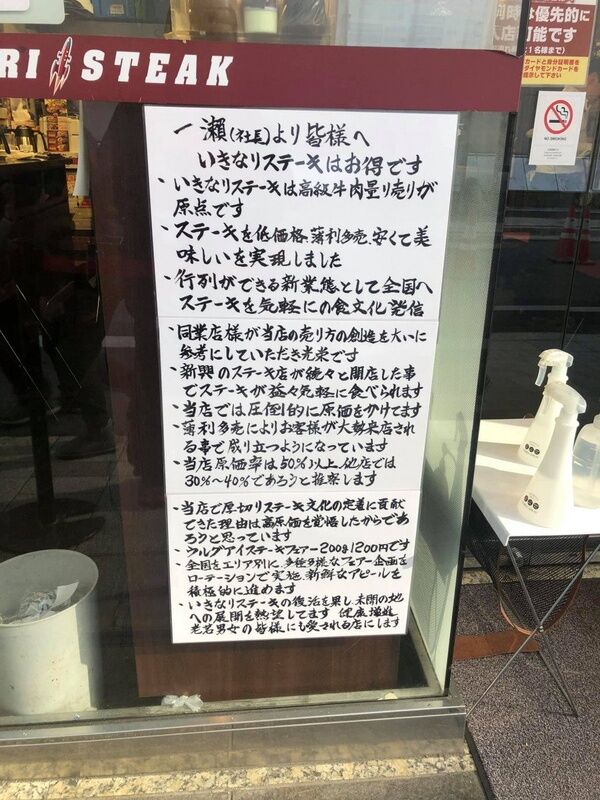 RI STEAK
一瀬(社長)より皆様へ
いきなりステーキはお得です
・いきなりステーキは高級牛肉量り売りが
原点です
・ステーキを低価格、薄利多売、安くて美
味しいを実現しました
・行列ができる新業態として全国へ
ステーキを気軽にの食文化発信
・同業店様が当店の売り方の創造を大いに
参考にしていただき光栄です
・新興のステーキ店が続々と開店した事
でステーキが益々気軽に食べられます
・当店では圧倒的に原価をかけてます
・薄利多売によりお客様が大勢来店され
る事で成り立つようになっています
・当店原価率は50%以上、他店では
30%〜40%であろうと推察します
・当店で厚切りステーキ文化の定着に貢献
できた理由は高原価を覚悟したからであ
ろうと思っています
・ウルグアイステーキフェアー200g1200円です
・全国をエリア別に、多種多様なフェアー企画を
ローテーションで実施、新鮮なアピールを
積極的に進めます
・いきなりステーキの復活を果し、未開の地
への展開を熱望してます 健康増進
老若男女の皆様にも愛される店にします
は優先的に
可能です
1名様まで)
カードと身分証明書を
ダイヤモンドカードを
提示して下さい
NO SMOKING